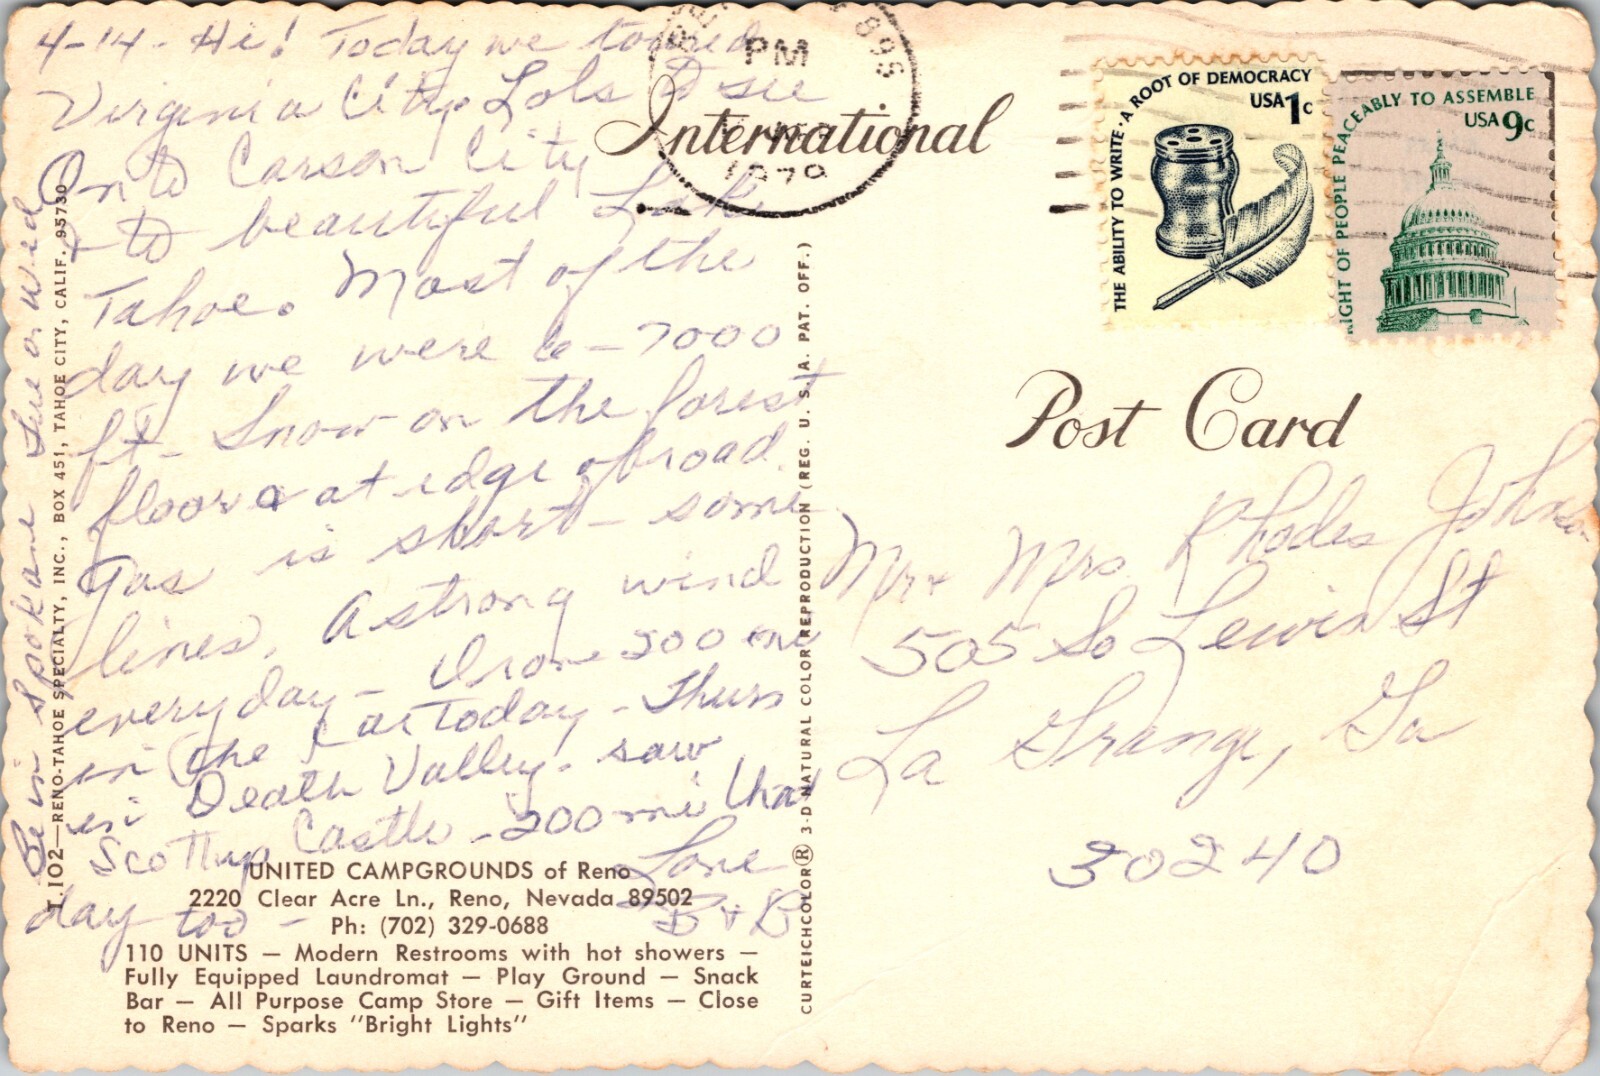 4-14- Hi! Today we toured
Virginia City. Lots to see
On to Carson City
& to beautiful Lake
Tahoe. Most of the
day we were 6-7000
ft- Snow on the forest
floor & at edge of road.
Gas is short - some
lines. A strong wind
everyday - Drove 200 mi
in the car today - Thurs
in Death Valley. saw
Scottys Castle - 200 mi that
day too -
Love
B & B
Be in Spokane Tue or Wed
I.102—RENO-TAHOE SPECIALTY, INC., BOX 451, TAHOE CITY, CALIF. 95730
UNITED CAMPGROUNDS of Reno
2220 Clear Acre Ln., Reno, Nevada 89502
Ph: (702) 329-0688
110 UNITS — Modern Restrooms with hot showers —
Fully Equipped Laundromat — Play Ground — Snack
Bar — All Purpose Camp Store — Gift Items — Close
to Reno — Sparks "Bright Lights"
CURTEICHCOLOR® 3-D NATURAL COLOR REPRODUCTION (REG. U. S. A. PAT. OFF.)
International
PM
1979
895
THE ABILITY TO WRITE·A ROOT OF DEMOCRACY
USA 1c
RIGHT OF PEOPLE PEACEABLY TO ASSEMBLE
USA 9c
Post Card
Mr & Mrs Rhodes Johnson
505 So Lewis St
La Grange, Ga
30240